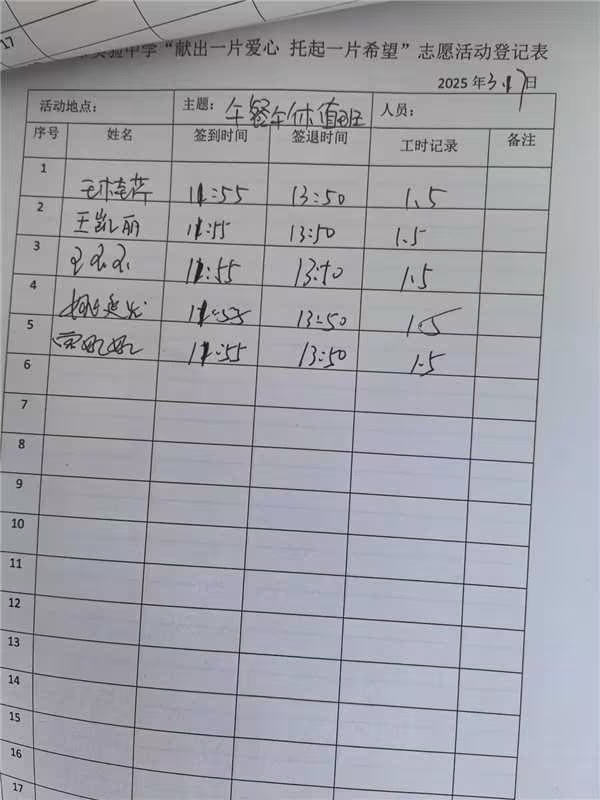 17
实验中学“献出一片爱心 托起一片希望”志愿活动登记表
2025 年3.17日
活动地点： 主题：午餐午休值班 人员：
序号 姓名 签到时间 签退时间 工时记录 备注
1 11:55 13:50 1.5
2 王凯丽 11:55 13:50 1.5
3 11:55 13:50 1.5
4 11:55 13:50 1.5
5 11:55 13:50 1.5
6
7
8
9
10
11
12
13
14
15
16
17